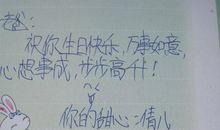 老爸:
祝你生日快乐,万事如意,
心想事成,步步高升!
你的甜心:倩儿